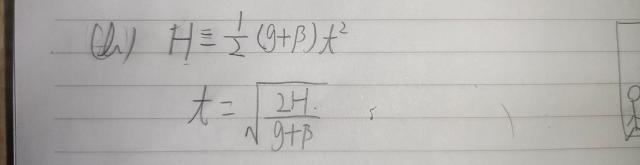 (h) H = 1/2 (g+β) t²
t = √(2H/(g+β))